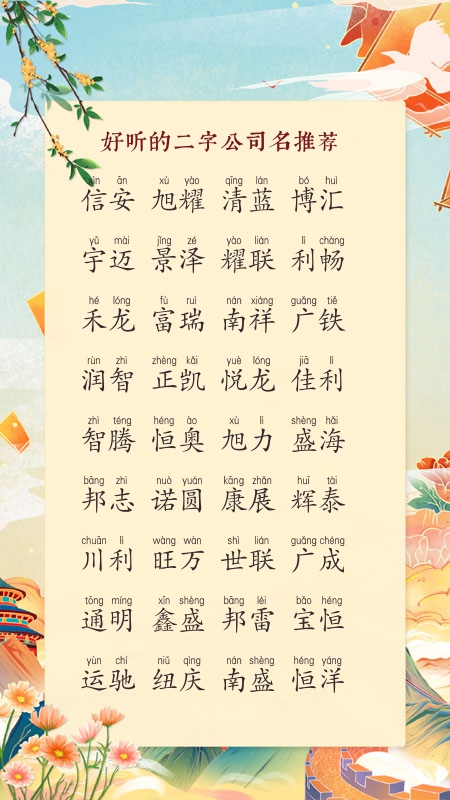 好听的二字公司名推荐
ān xù yào qīng lán bó huì
信安 旭耀 清蓝 博汇
yǔ mài jǐng zé yào lián lì chàng
宇迈 景泽 耀联 利畅
hé lóng fù ruì nán xiáng guǎng tiě
禾龙 富瑞 南祥 广铁
rùn zhì zhèng kǎi yuè lóng jiā lì
润智 正凯 悦龙 佳利
zhì téng héng ào xù lì shèng hǎi
智腾 恒奥 旭力 盛海
bāng zhì nuò yuán kāng zhǎn huī tài
邦志 诺圆 康展 辉泰
chuān lì wàng wàn shì lián guǎng chéng
川利 旺万 世联 广成
tōng míng xīn shèng bāng léi bǎo héng
通明 鑫盛 邦雷 宝恒
yùn chí niǔ qìng nán shèng héng yáng
运驰 纽庆 南盛 恒洋